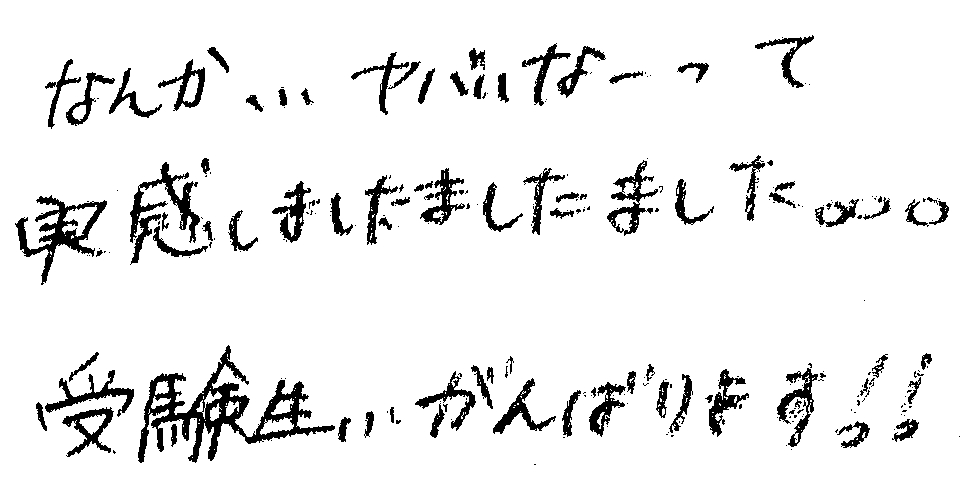 なんか、、、ヤバいなーって
実感しましたましたました。。。
受験生、、、がんばります!!